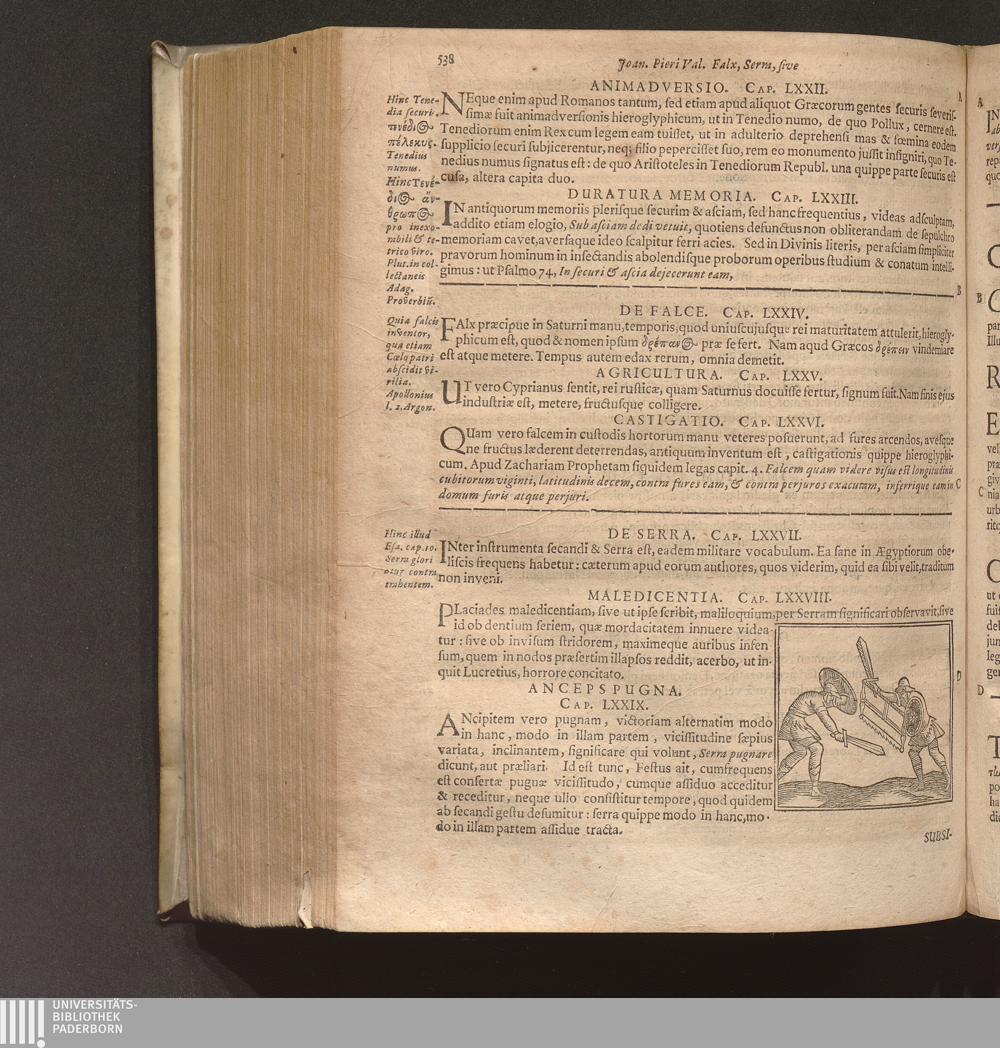 538
Joan. Pieri Val. Falx, Serra, ſive
ANIMADVERSIO. CAP. LXXII.
NEque enim apud Romanos tantum, ſed etiam apud aliquot Græcorum gentes ſecuris ſeveriſ-
ſimæ fuit animadverſionis hieroglyphicum, ut in Tenedio numo, de quo Pollux, cernere eſt.
Tenediorum enim Rex cum legem eam tuliſſet, ut in adulterio deprehenſi mas & fœmina eodem
ſupplicio ſecuri ſubjicerentur, neq; filio peperciſſet ſuo, rem eo monumento juſſit inſigniri, quo Te-
nedius numus ſignatus eſt: de quo Ariſtoteles in Tenediorum Republ. una quippe parte ſecuris eſt
cuſa, altera capita duo.
Hinc Tene-
dia ſecuri.
πέλεκυς.
Tenedius
numus.
Hinc Τενέ-
δι@ ἄν-
θρωπ@
pro inexo-
rabili & te-
trico viro.
Plut. in col-
lectaneis
Adag.
Proverbiū.
DURATURA MEMORIA. CAP. LXXIII.
IN antiquorum memoriis pleriſque ſecurim & aſciam, ſed hanc frequentius, videas adſculptam,
addito etiam elogio, Sub aſciam dedi vetuit, quotiens defunctus non obliterandam de ſepulchro
memoriam cavet, averſaque ideo ſcalpitur ferri acies. Sed in Divinis literis, per aſciam ſimpliciter
pravorum hominum in inſectandis abolendiſque proborum operibus ſtudium & conatum intelli-
gimus: ut Pſalmo 74, In ſecuri & aſcia dejecerunt eam,
B
DE FALCE. CAP. LXXIV.
FAlx præcipue in Saturni manu, temporis, quod uniuſcujuſque rei maturitatem attulerit, hierogly-
phicum eſt, quod & nomen ipſum δρέπαν@ præ ſe fert. Nam aqud Græcos δρέπειν vindemiare
eſt atque metere. Tempus autem edax rerum, omnia demetit.
Quia falcis
inventor,
qua etiam
Cœlo patri
abſcidit vi-
rilia.
Apollonius
l. 2. Argon.
AGRICULTURA. CAP. LXXV.
UT vero Cyprianus ſentit, rei ruſticæ, quam Saturnus docuiſſe fertur, ſignum fuit. Nam finis ejus
induſtriæ eſt, metere, fructuſque colligere.
CASTIGATIO. CAP. LXXVI.
QUam vero falcem in cuſtodis hortorum manu veteres poſuerunt, ad fures arcendos, aveſque
ne fructus læderent deterrendas, antiquum inventum eſt, caſtigationis quippe hieroglyphi-
cum. Apud Zachariam Prophetam ſiquidem legas capit. 4. Falcem quam videre viſus eſt longitudinis
cubitorum viginti, latitudinis decem, contra fures eam, & contra perjuros exacutam, inferrique eam in
domum furis atque perjuri.
C
DE SERRA. CAP. LXXVII.
INter inſtrumenta ſecandi & Serra eſt, eadem militare vocabulum. Ea ſane in Ægyptiorum obe-
liſcis frequens habetur: cæterum apud eorum authores, quos viderim, quid ea ſibi velit, traditum
non inveni.
Hinc illud
Eſa. cap. 10.
Serra glori
atur contra
trahentem.
MALEDICENTIA. CAP. LXXVIII.
PLaciades maledicentiam, ſive ut ipſe ſcribit, maliloquium, per Serram ſignificari obſervavit, ſive
id ob dentium ſeriem, quæ mordacitatem innuere videa-
tur: ſive ob inviſum ſtridorem, maximeque auribus infen
ſum, quem in nodos præſertim illapſos reddit, acerbo, ut in-
quit Lucretius, horrore concitato.
D
ANCEPS PUGNA.
CAP. LXXIX.
ANcipitem vero pugnam, victoriam alternatim modo
in hanc, modo in illam partem, viciſſitudine ſæpius
variata, inclinantem, ſignificare qui volunt, Serra pugnare
dicunt, aut præliari. Id eſt tunc, Feſtus ait, cum frequens
eſt conſertæ pugnæ viciſſitudo, cumque aſſiduo acceditur
& receditur, neque ullo conſiſtitur tempore, quod quidem
ab ſecandi geſtu deſumitur: ſerra quippe modo in hanc, mo-
do in illam partem aſſidue tracta.
SUBSI-
UNIVERSITÄTS-
BIBLIOTHEK
PADERBORN